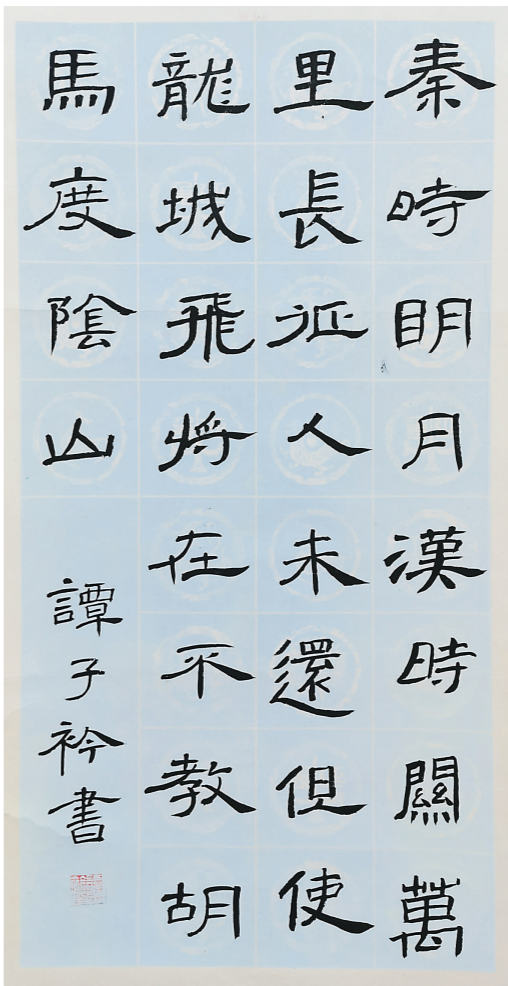 秦時明月漢時關萬
里長征人未還但使
龍城飛将在不教胡
馬度陰山
譚子衿書